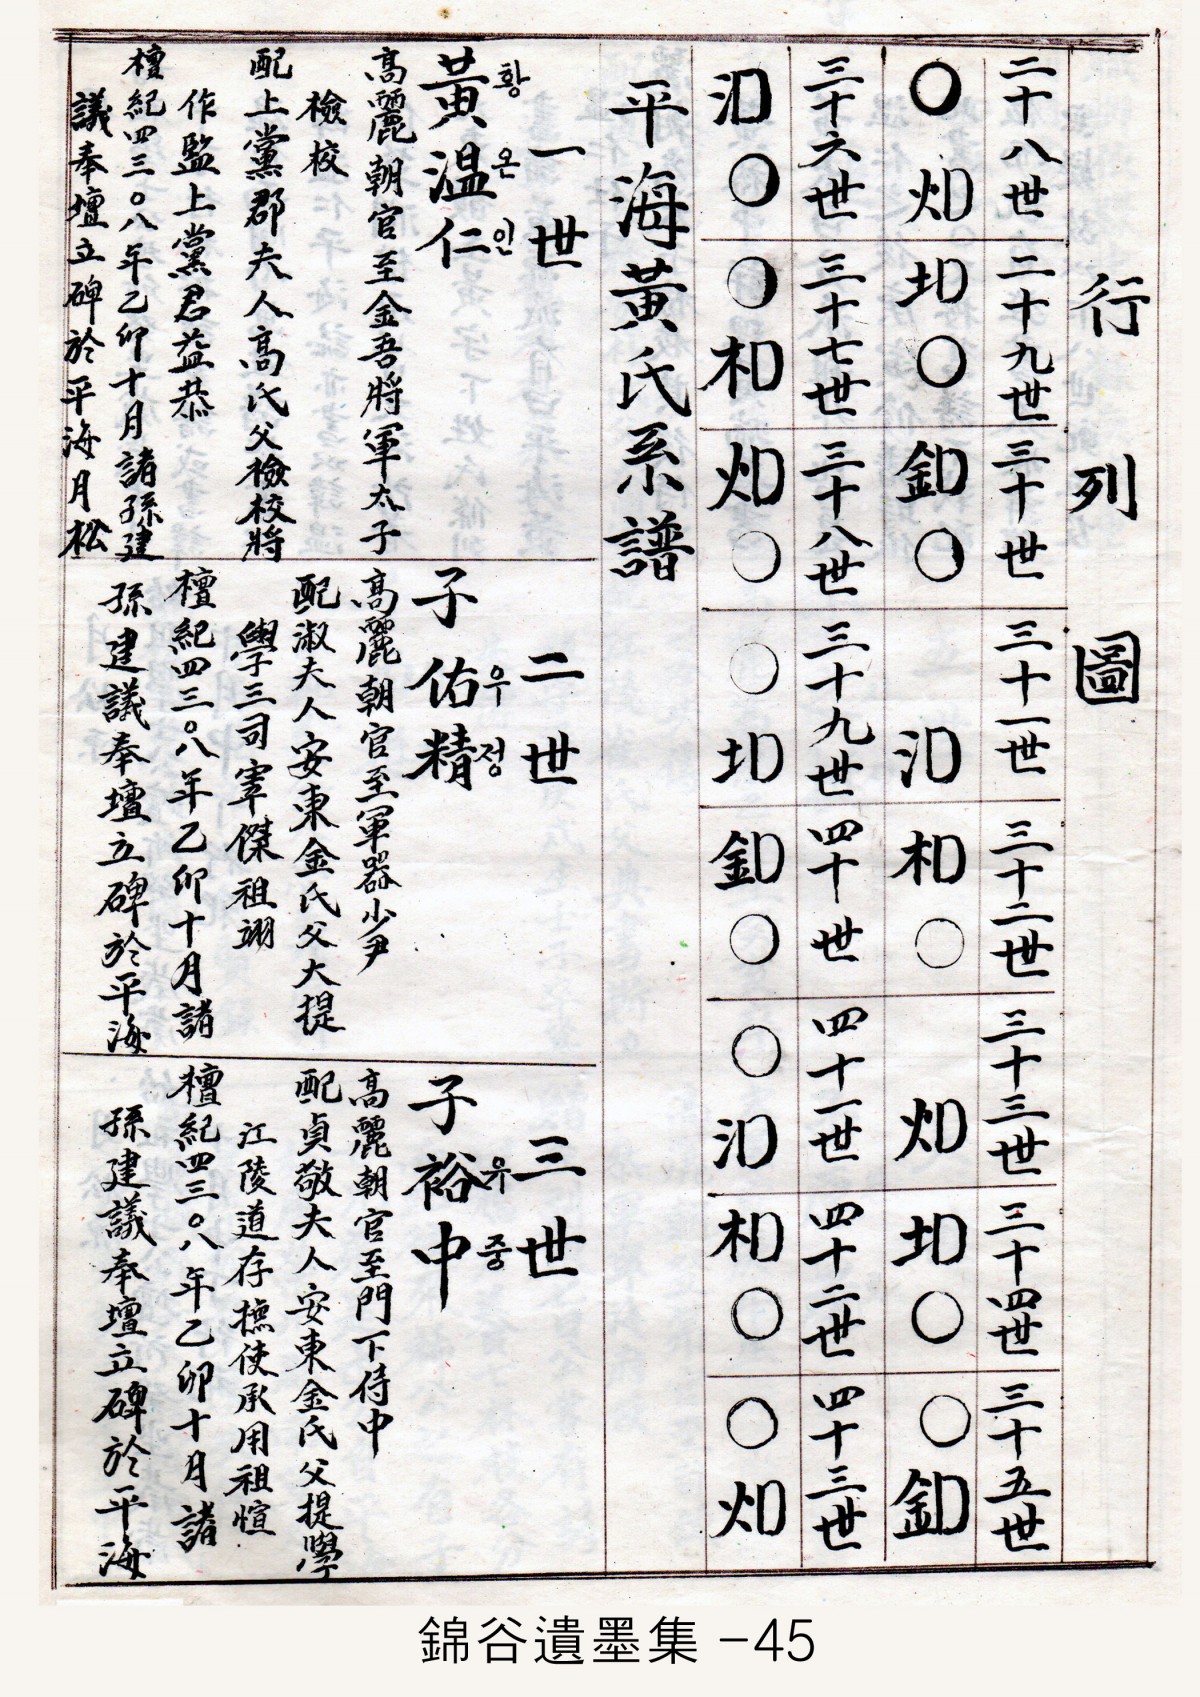 行列圖
二十八世 二十九世 三十世 三十一世 三十二世 三十三世 三十四世 三十五世
○火□ 土□○ 金□○ 氵□ 木□○ 火□ 土□○ ○金□
三十六世 三十七世 三十八世 三十九世 四十世 四十一世 四十二世 四十三世
氵□○ ○木□ 火□○ ○土□ 金□○ ○氵□ 木□○ ○火□
平海黃氏系譜
一世
황온인
黃温仁
高麗朝官至金吾將軍太子
檢校
配上黨郡夫人高氏父檢校將
作監上黨君益恭
檀紀四三〇八年乙卯十月諸孫建
議奉壇立碑於平海月松
二世
우정
子佑精
高麗朝官至軍器少尹
配淑夫人安東金氏父大提
學三司宰傑祖翊
檀紀四三〇八年乙卯十月諸
孫建議奉壇立碑於平海
三世
유중
子裕中
高麗朝官至門下侍中
配貞敬夫人安東金氏父提學
江陵道存撫使承用祖愃
檀紀四三〇八年乙卯十月諸
孫建議奉壇立碑於平海
錦谷遺墨集 -45